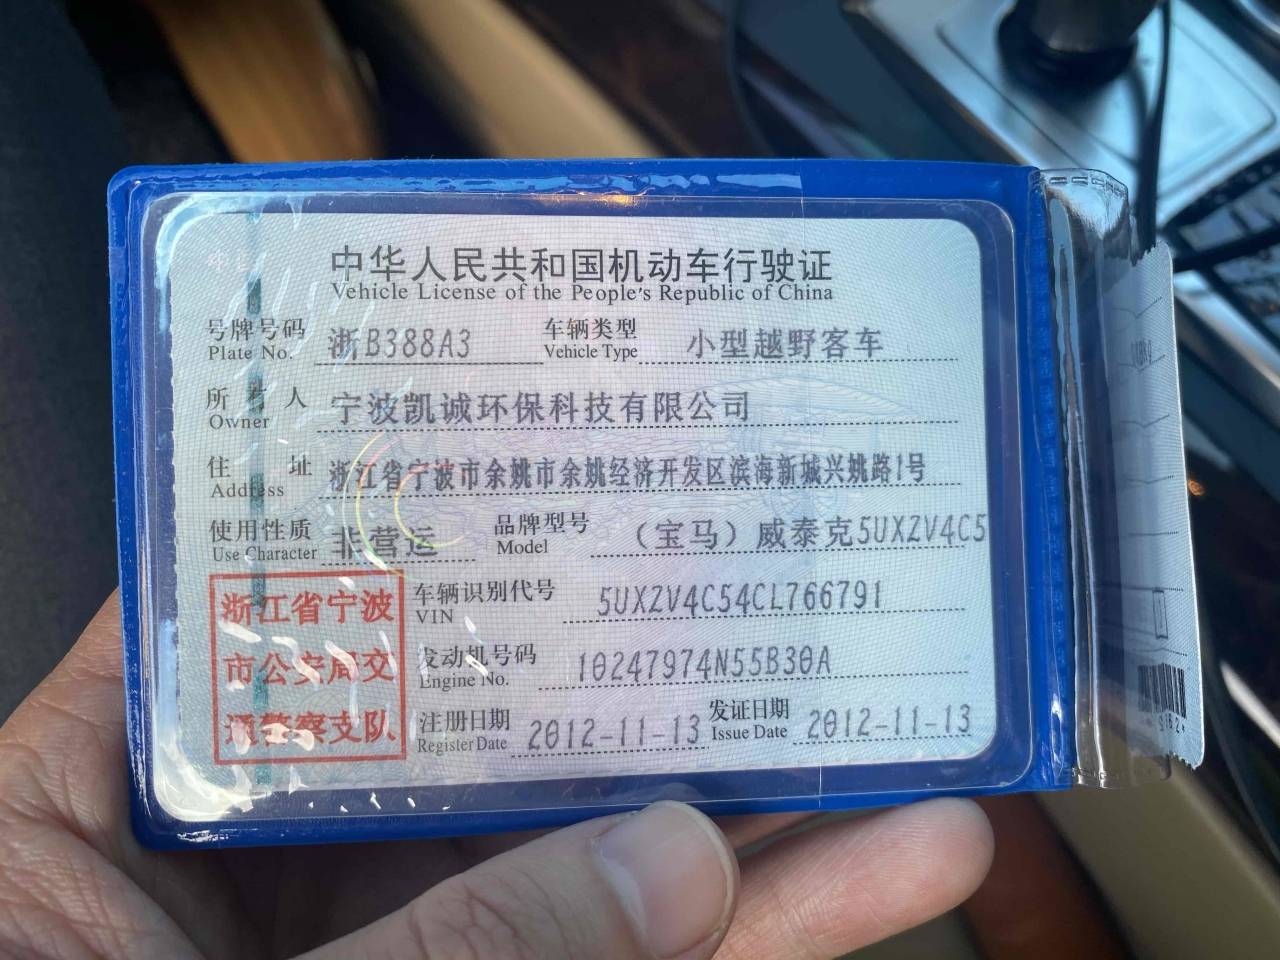 中华人民共和国机动车行驶证
Vehicle License of the People's Republic of China
号牌号码 浙B388A3 车辆类型 小型越野客车
Plate No. Vehicle Type
所有人 宁波凯诚环保科技有限公司
Owner
住址 浙江省宁波市余姚市余姚经济开发区滨海新城兴姚路1号
Address
使用性质 非营运 品牌型号 （宝马）威泰克5UXZV4C5
Use Character Model
车辆识别代号 5UXZV4C54CL766791
VIN
发动机号码 10247974N55B30A
Engine No.
注册日期 2012-11-13 发证日期 2012-11-13
Register Date Issue Date
浙江省宁波
市公安局交
通警察支队